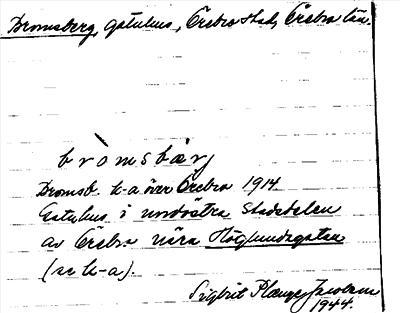 Bromsberg, gatuhus, Örebro stad, Örebro län.
bròmsbærj
Bromsb. k-a över Örebro 1914
Gatuhus i nordöstra Stadsdelen
av Örebro nära Höglundagatan
(se k-a).
Sigbrit Plænge Jacobson
1944.